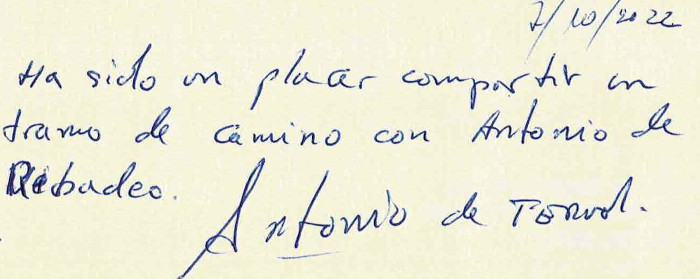 7/10/2022
Ha sido un placer compartir un
tramo de camino con Antonio de
Ribadeo.
Antonio de Teruel.